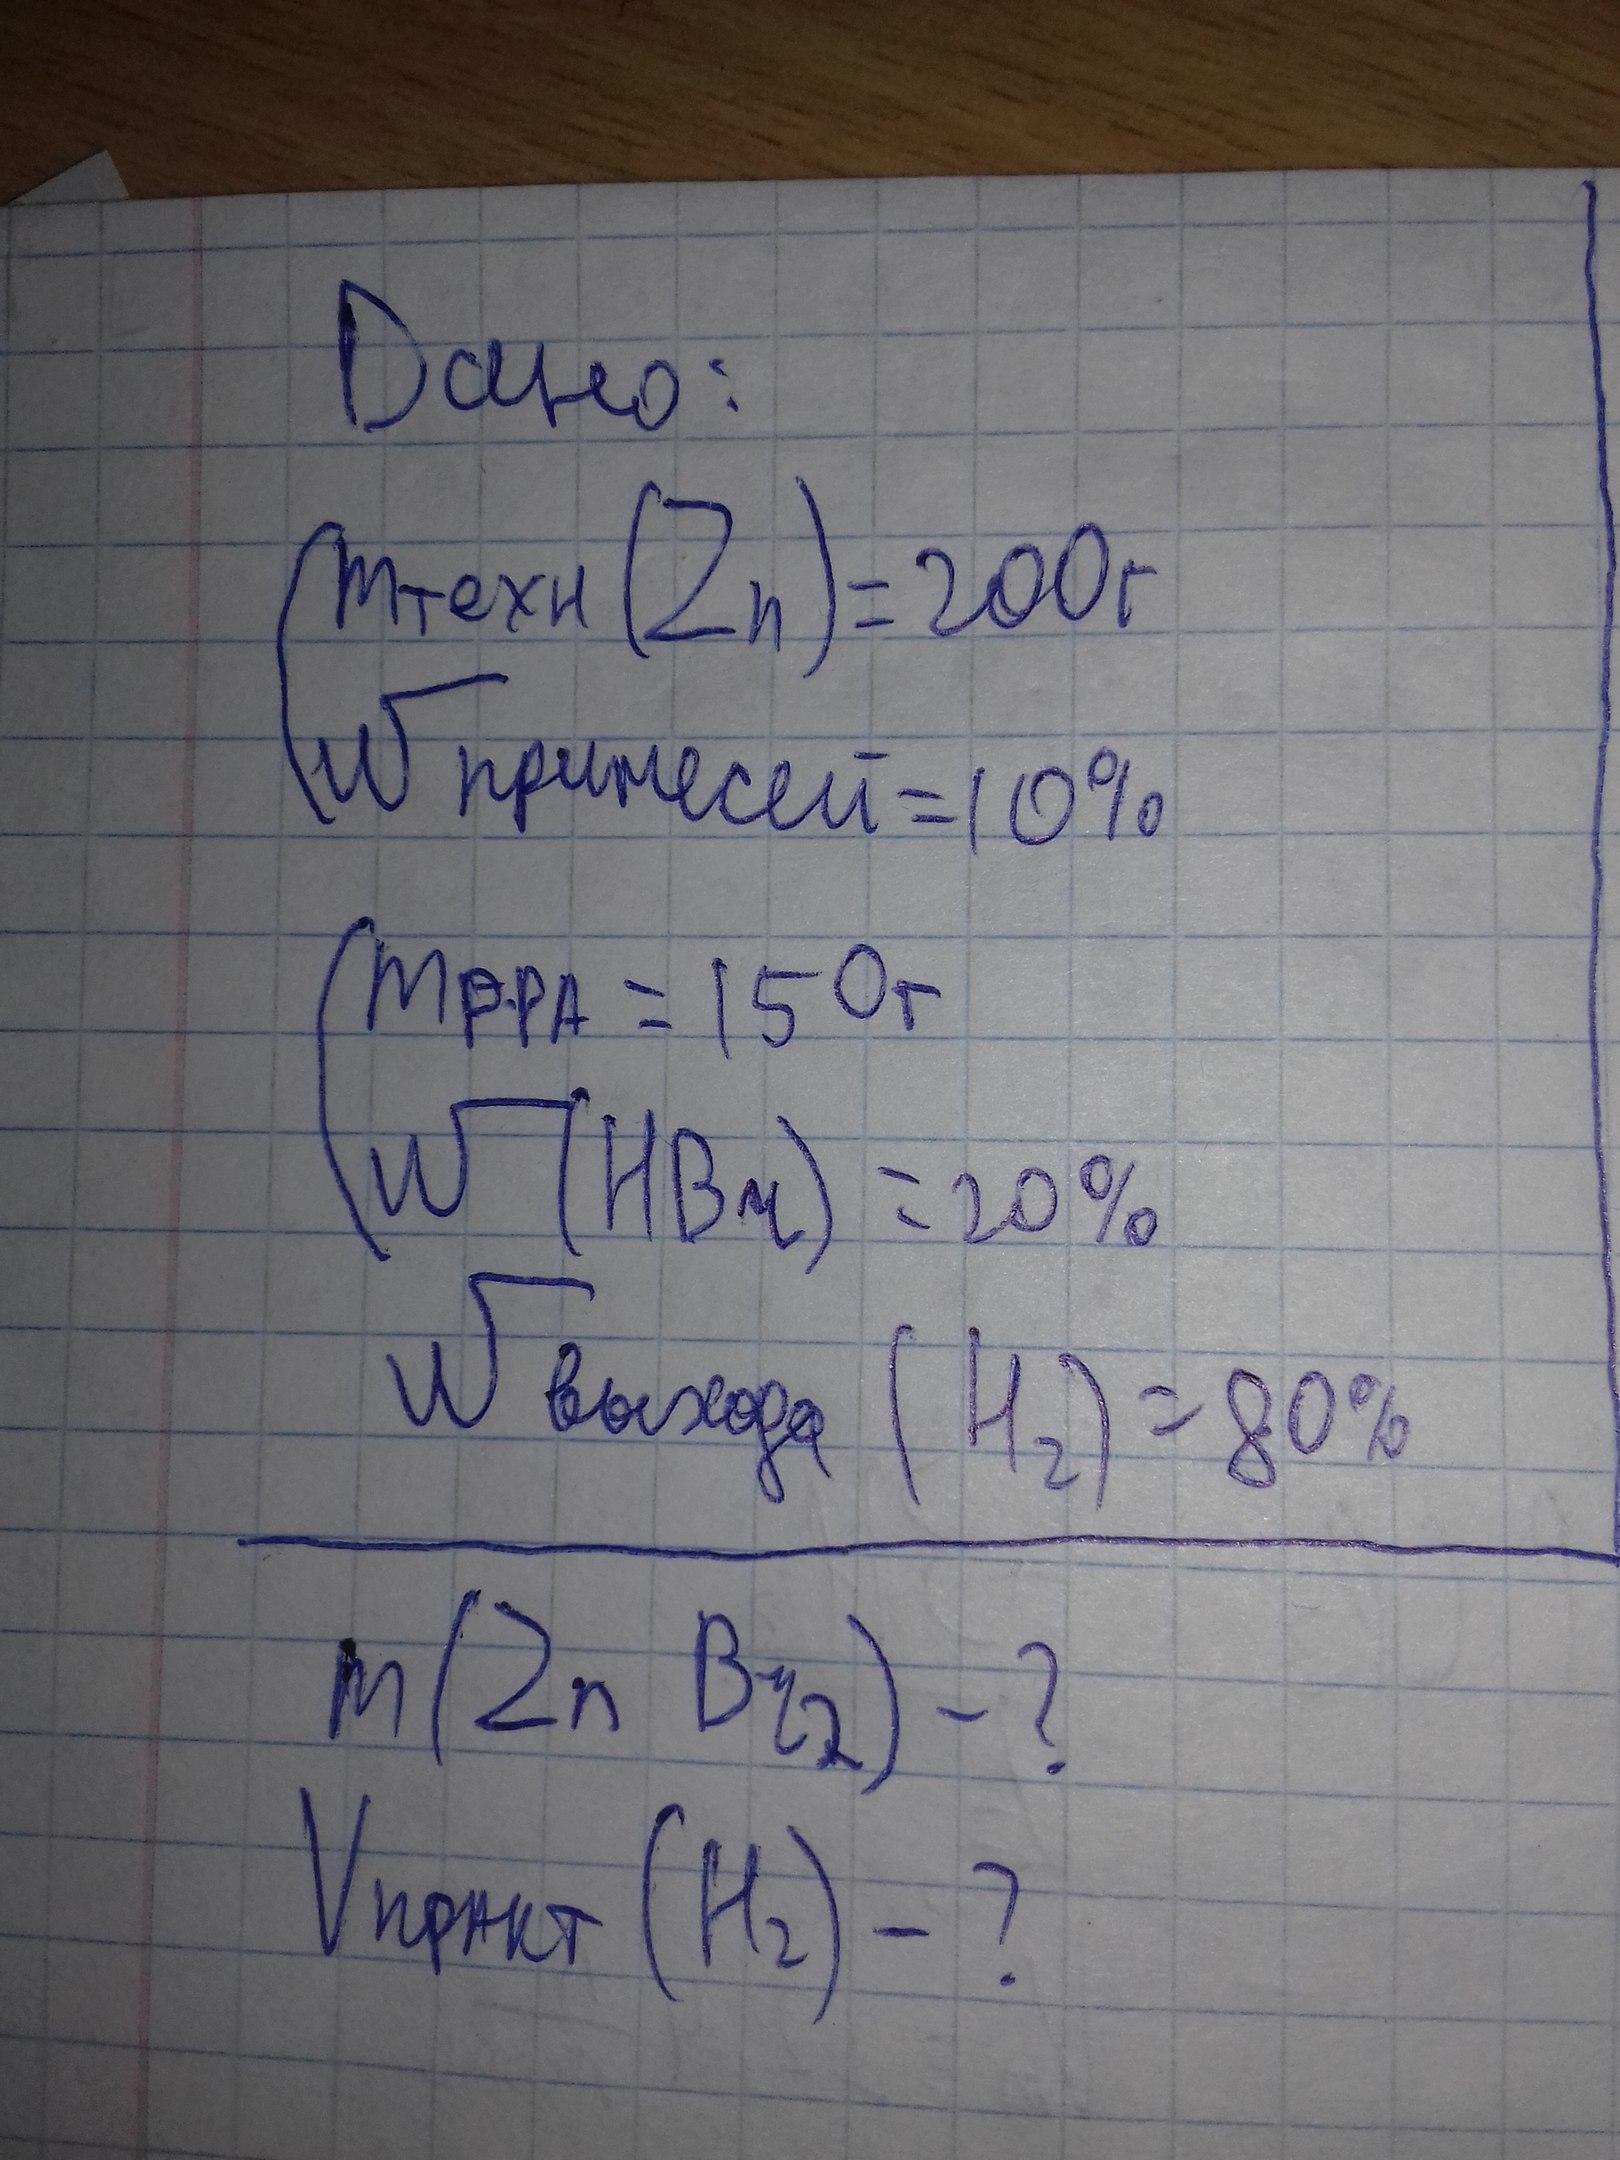 Дано:
mтехн (Zn) = 200г
w примесей = 10%
mР-РА = 150г
w (HBr) = 20%
w выхода (H₂) = 80%
m (Zn Br₂) - ?
Vпракт (H₂) - ?